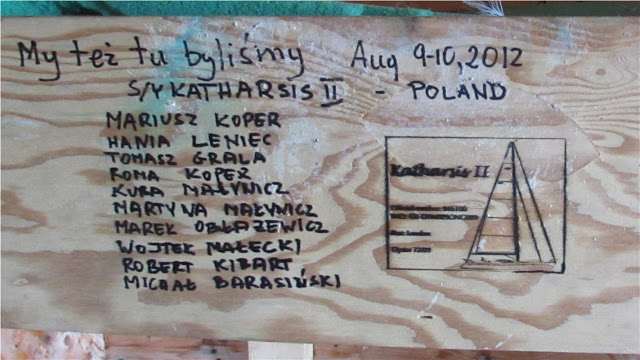 My też tu byliśmy Aug 9-10, 2012
S/Y KATHARSIS II - POLAND
MARIUSZ KOPER
HANIA LENIEC
TOMASZ GRALA
ROMA KOPER
KUBA MAŁYNICZ
MARTYNA MAŁYNICZ
MAREK OBŁAZEWICZ
WOJTEK MAŁECKI
ROBERT KIBART
MICHAŁ BARASIŃSKI
Katharsis II